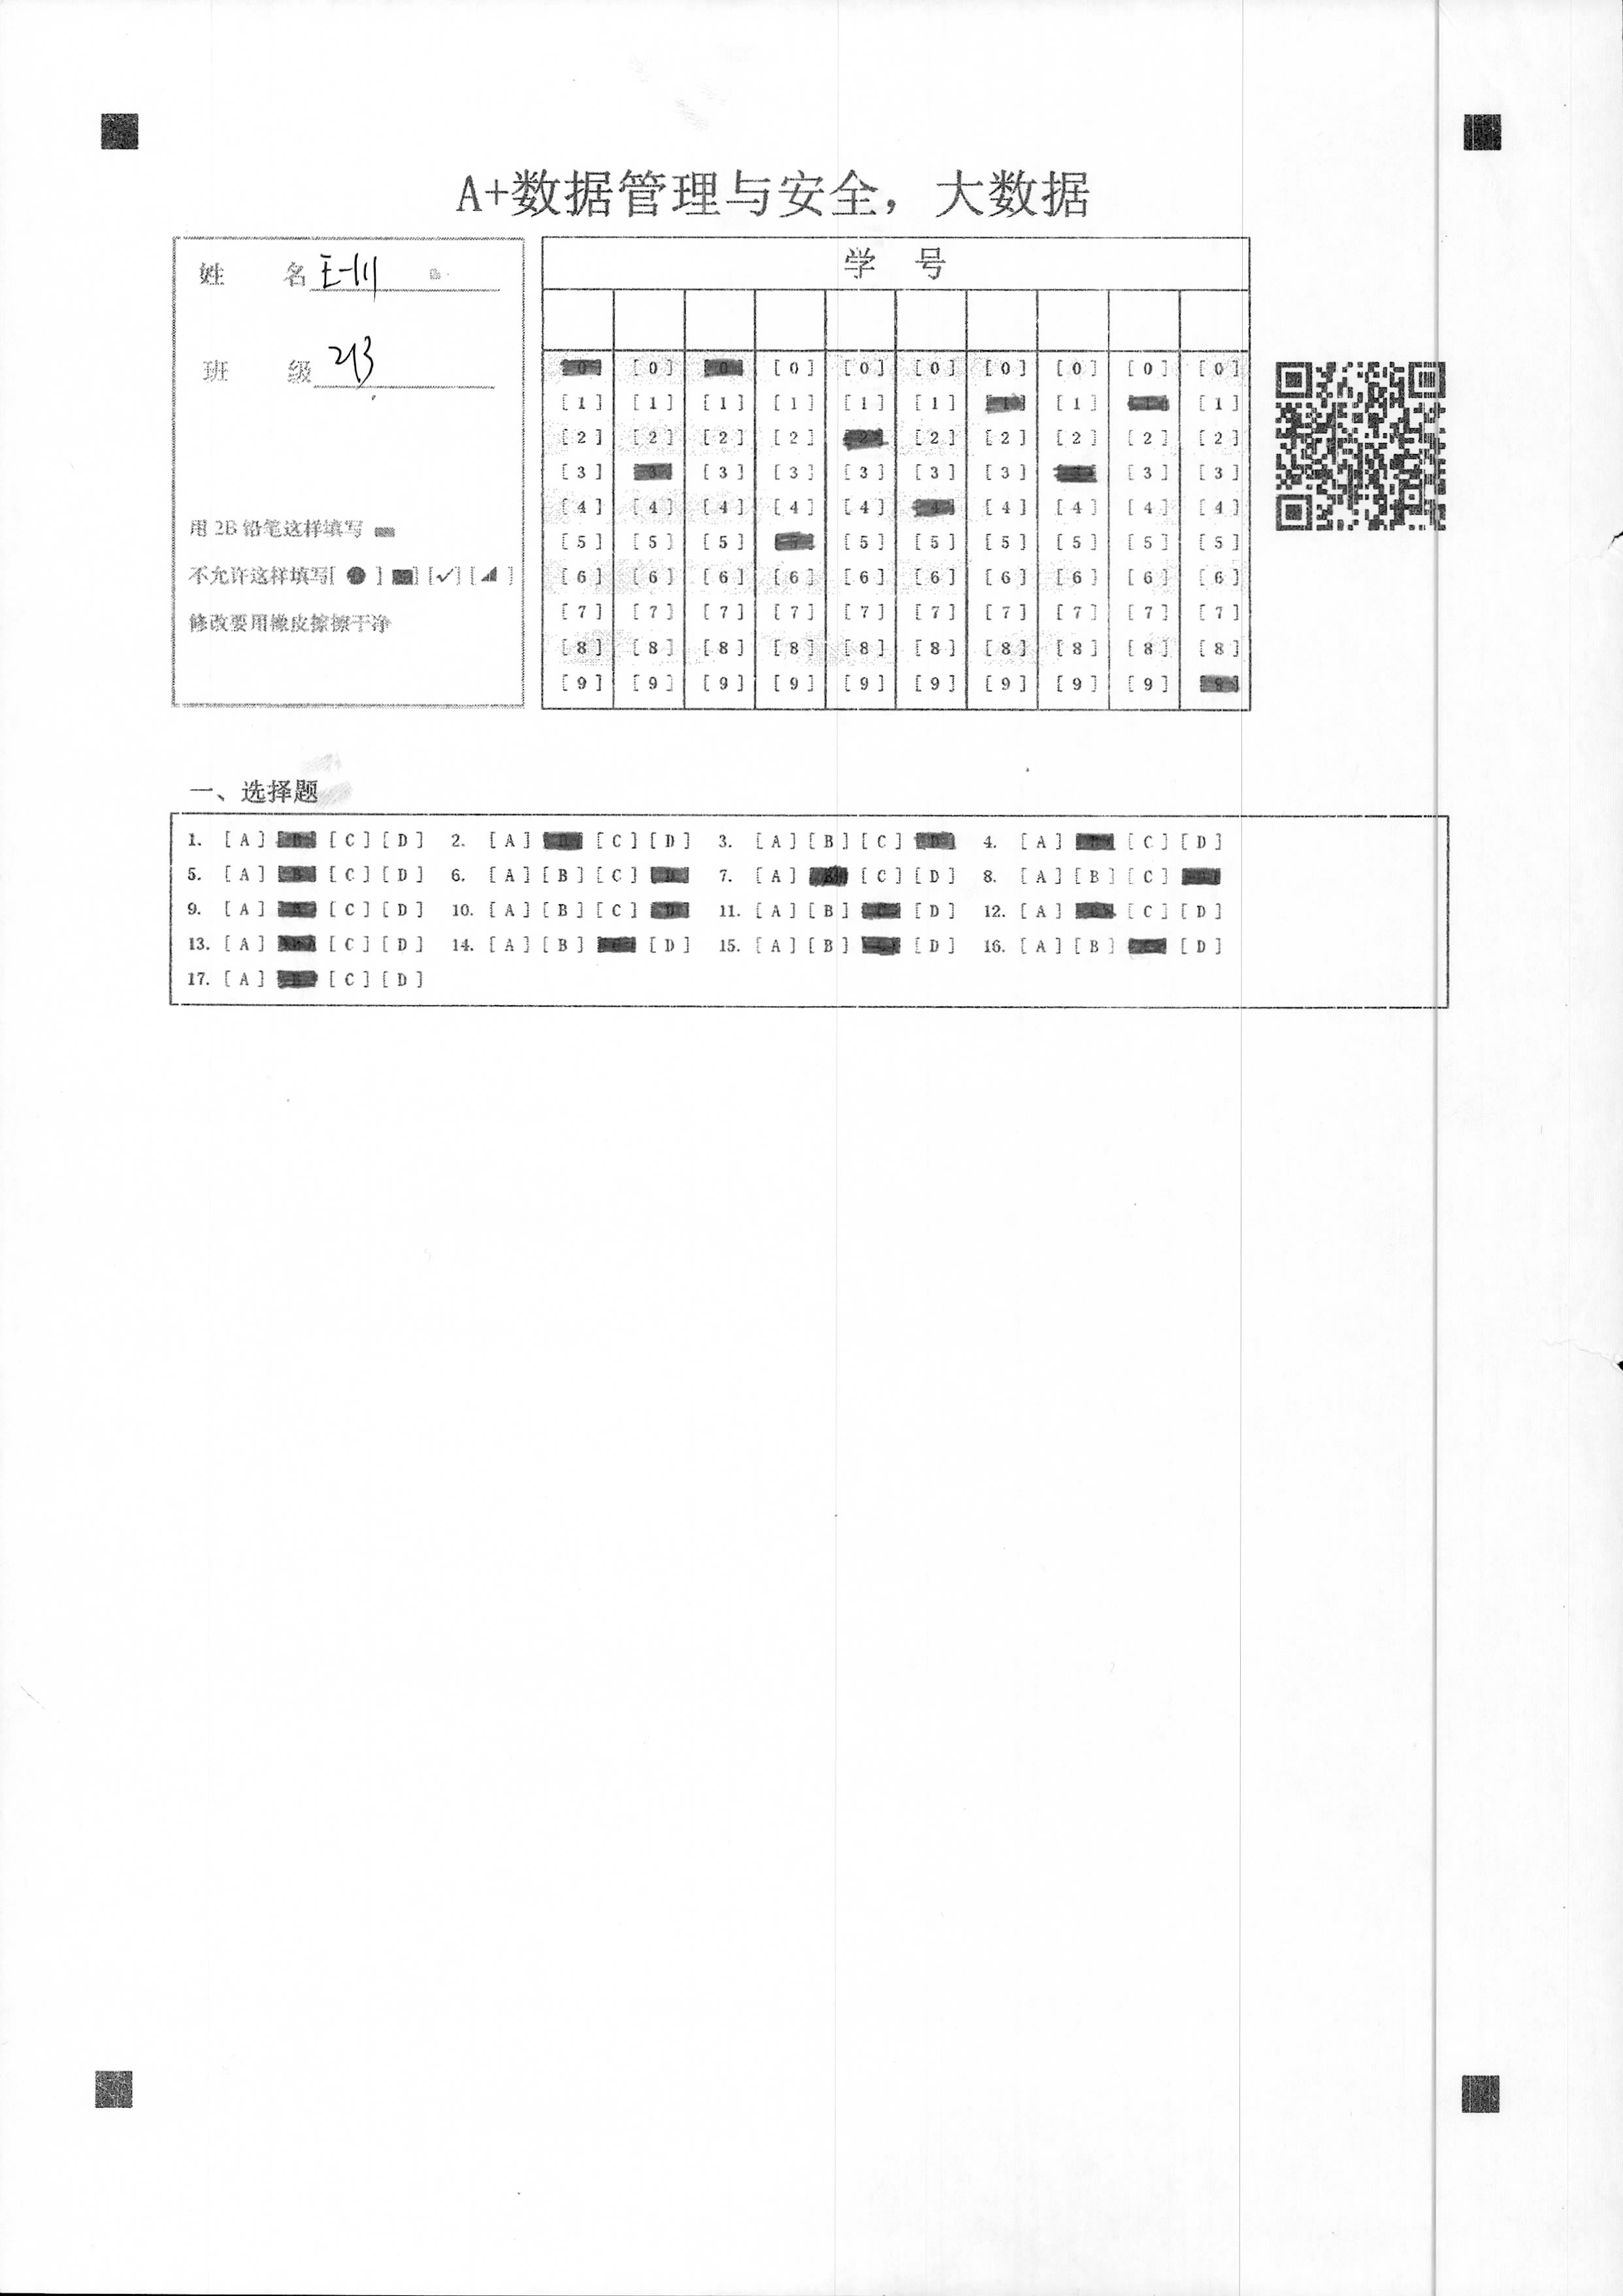 A+数据管理与安全，大数据
姓 名 王一川
班 级 213
用 2B 铅笔这样填写
不允许这样填写[ ● ] [■] [✓] [◢ ]
修改要用橡皮擦擦干净
学 号
[0] [0] [0] [0] [0] [0] [0] [0] [0] [0]
[1] [1] [1] [1] [1] [1] [1] [1] [1] [1]
[2] [2] [2] [2] [2] [2] [2] [2] [2] [2]
[3] [3] [3] [3] [3] [3] [3] [3] [3] [3]
[4] [4] [4] [4] [4] [4] [4] [4] [4] [4]
[5] [5] [5] [5] [5] [5] [5] [5] [5] [5]
[6] [6] [6] [6] [6] [6] [6] [6] [6] [6]
[7] [7] [7] [7] [7] [7] [7] [7] [7] [7]
[8] [8] [8] [8] [8] [8] [8] [8] [8] [8]
[9] [9] [9] [9] [9] [9] [9] [9] [9] [9]
一、选择题
1. [A] [B] [C] [D] 2. [A] [B] [C] [D] 3. [A] [B] [C] [D] 4. [A] [B] [C] [D]
5. [A] [B] [C] [D] 6. [A] [B] [C] [D] 7. [A] [B] [C] [D] 8. [A] [B] [C] [D]
9. [A] [B] [C] [D] 10. [A] [B] [C] [D] 11. [A] [B] [C] [D] 12. [A] [B] [C] [D]
13. [A] [B] [C] [D] 14. [A] [B] [C] [D] 15. [A] [B] [C] [D] 16. [A] [B] [C] [D]
17. [A] [B] [C] [D]